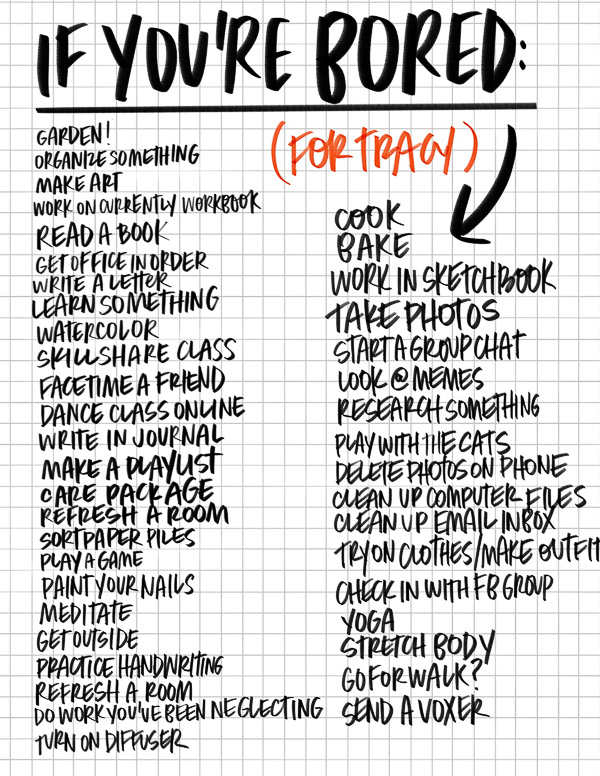 IF YOU'RE BORED:
(FOR TRACY)
GARDEN!
ORGANIZE SOMETHING
MAKE ART
WORK ON CURRENTLY WORKBOOK
READ A BOOK
GET OFFICE IN ORDER
WRITE A LETTER
LEARN SOMETHING
WATERCOLOR
SKILLSHARE CLASS
FACETIME A FRIEND
DANCE CLASS ONLINE
WRITE IN JOURNAL
MAKE A PLAYLIST
CARE PACKAGE
REFRESH A ROOM
SORT PAPER PILES
PLAY A GAME
PAINT YOUR NAILS
MEDITATE
GET OUTSIDE
PRACTICE HANDWRITING
REFRESH A ROOM
DO WORK YOU'VE BEEN NEGLECTING
TURN ON DIFFUSER
COOK
BAKE
WORK IN SKETCHBOOK
TAKE PHOTOS
START A GROUP CHAT
LOOK @ MEMES
RESEARCH SOMETHING
PLAY WITH THE CATS
DELETE PHOTOS ON PHONE
CLEAN UP COMPUTER FILES
CLEAN UP EMAIL INBOX
TRY ON CLOTHES/MAKE OUTFIT
CHECK IN WITH FB GROUP
YOGA
STRETCH BODY
GO FOR WALK?
SEND A VOXER